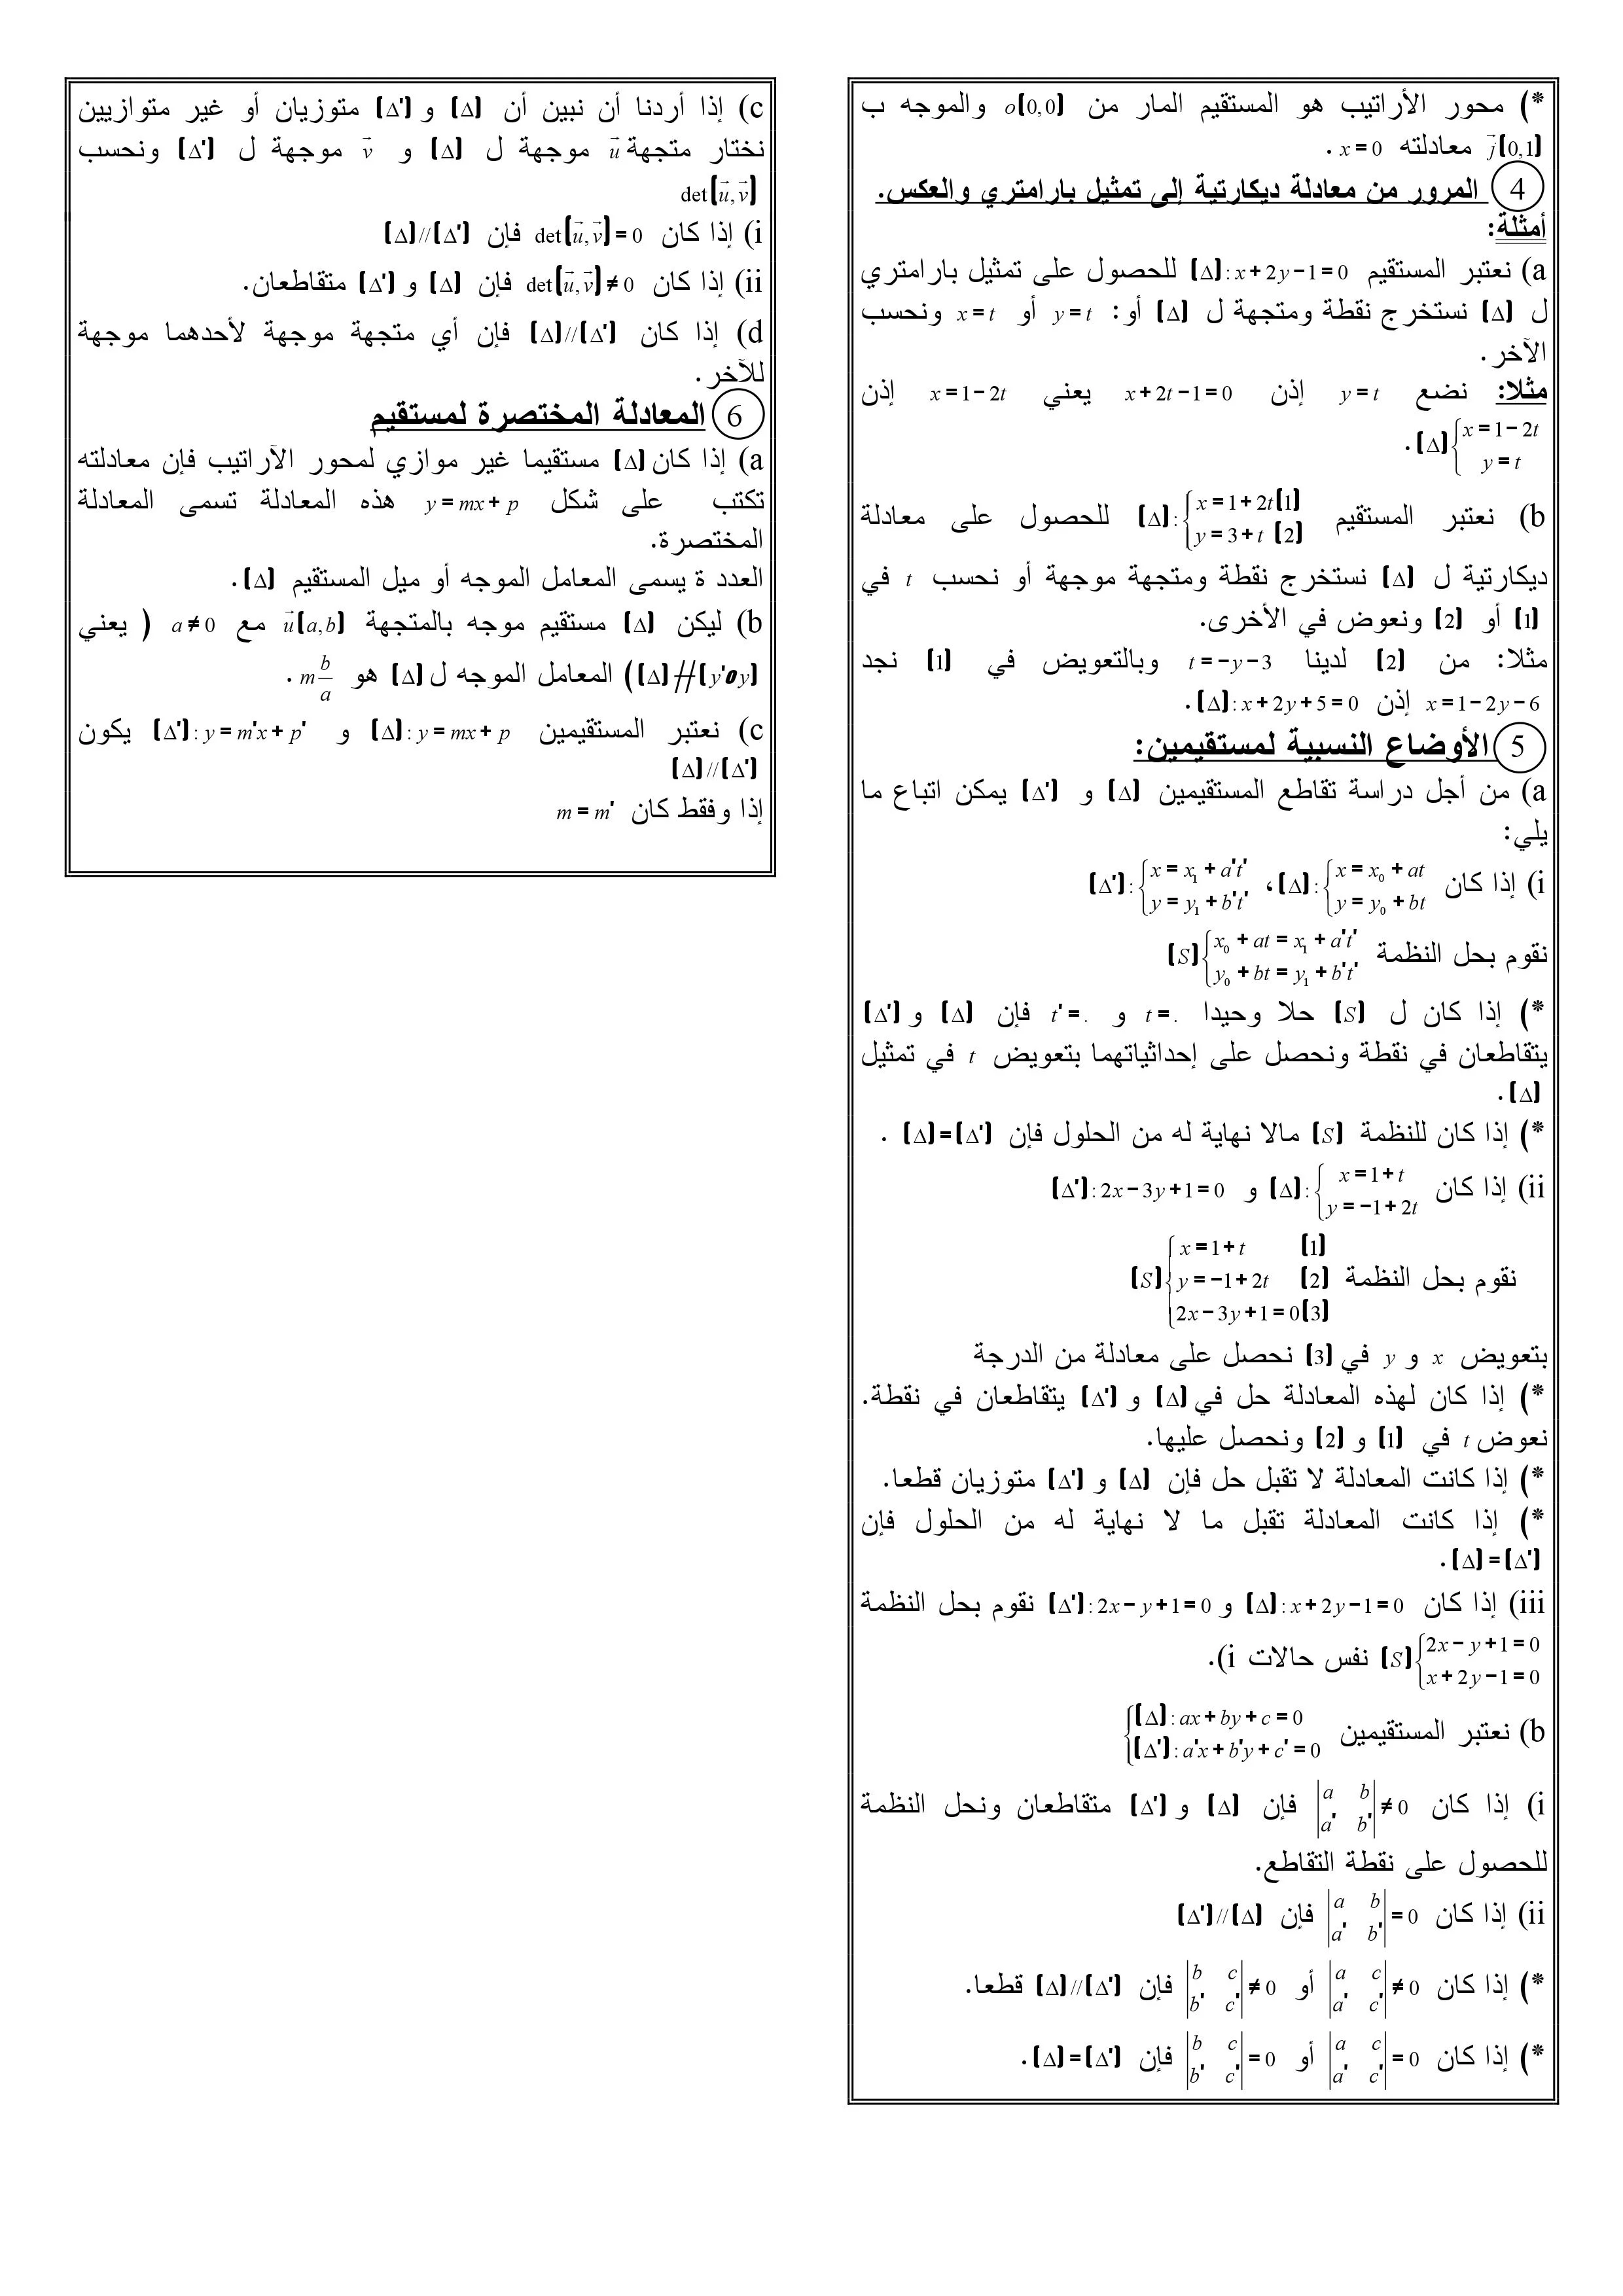 *) محور الأراتيب هو المستقيم المار من o(0,0) والموجه ب
j⃗(0,1) معادلته x = 0 .
4 المرور من معادلة ديكارتية إلى تمثيل بارامتري والعكس.
أمثلة:
a) نعتبر المستقيم (Δ): x + 2y − 1 = 0 للحصول على تمثيل بارامتري
ل (Δ) نستخرج نقطة ومتجهة ل (Δ) أو: y = t أو x = t ونحسب
الآخر.
مثلا: نضع y = t إذن x + 2t − 1 = 0 يعني x = 1 − 2t إذن
(Δ) { x = 1 − 2t
y = t .
b) نعتبر المستقيم (Δ): { x = 1 + 2t (1)
y = 3 + t (2) للحصول على معادلة
ديكارتية ل (Δ) نستخرج نقطة ومتجهة موجهة أو نحسب t في
(1) أو (2) ونعوض في الأخرى.
مثلا: من (2) لدينا t = −y − 3 وبالتعويض في (1) نجد
x = 1 − 2y − 6 إذن (Δ): x + 2y + 5 = 0 .
5 الأوضاع النسبية لمستقيمين:
a) من أجل دراسة تقاطع المستقيمين (Δ) و (Δ') يمكن اتباع ما
يلي:
i) إذا كان (Δ): { x = x₀ + at
y = y₀ + bt ، (Δ'): { x = x₁ + a't'
y = y₁ + b't'
نقوم بحل النظمة (S) { x₀ + at = x₁ + a't'
y₀ + bt = y₁ + b't'
*) إذا كان ل (S) حلا وحيدا t = . و t' = . فإن (Δ) و (Δ')
يتقاطعان في نقطة ونحصل على إحداثياتهما بتعويض t في تمثيل
(Δ) .
*) إذا كان للنظمة (S) مالا نهاية له من الحلول فإن (Δ) = (Δ') .
ii) إذا كان (Δ): { x = 1 + t
y = −1 + 2t و (Δ'): 2x − 3y + 1 = 0
نقوم بحل النظمة (S) { x = 1 + t (1)
y = −1 + 2t (2)
2x − 3y + 1 = 0 (3)
بتعويض x و y في (3) نحصل على معادلة من الدرجة
*) إذا كان لهذه المعادلة حل في (Δ) و (Δ') يتقاطعان في نقطة.
نعوض t في (1) و (2) ونحصل عليها.
*) إذا كانت المعادلة لا تقبل حل فإن (Δ) و (Δ') متوزيان قطعا.
*) إذا كانت المعادلة تقبل ما لا نهاية له من الحلول فإن
(Δ) = (Δ') .
iii) إذا كان (Δ): x + 2y − 1 = 0 و (Δ'): 2x − y + 1 = 0 نقوم بحل النظمة
(S) { 2x − y + 1 = 0
x + 2y − 1 = 0 نفس حالات i).
b) نعتبر المستقيمين { (Δ): ax + by + c = 0
(Δ'): a'x + b'y + c' = 0
i) إذا كان |a b; a' b'| ≠ 0 فإن (Δ) و (Δ') متقاطعان ونحل النظمة
للحصول على نقطة التقاطع.
ii) إذا كان |a b; a' b'| = 0 فإن (Δ') // (Δ)
*) إذا كان |a c; a' c'| ≠ 0 أو |b c; b' c'| ≠ 0 فإن (Δ) // (Δ') قطعا.
*) إذا كان |a c; a' c'| = 0 أو |b c; b' c'| = 0 فإن (Δ) = (Δ') .
c) إذا أردنا أن نبين أن (Δ) و (Δ') متوزيان أو غير متوازيين
نختار متجهة u⃗ موجهة ل (Δ) و v⃗ موجهة ل (Δ') ونحسب
det(u⃗, v⃗)
i) إذا كان det(u⃗, v⃗) = 0 فإن (Δ) // (Δ')
ii) إذا كان det(u⃗, v⃗) ≠ 0 فإن (Δ) و (Δ') متقاطعان.
d) إذا كان (Δ) // (Δ') فإن أي متجهة موجهة لأحدهما موجهة
للآخر.
6 المعادلة المختصرة لمستقيم
a) إذا كان (Δ) مستقيما غير موازي لمحور الآراتيب فإن معادلته
تكتب على شكل y = mx + p هذه المعادلة تسمى المعادلة
المختصرة.
العدد ة يسمى المعامل الموجه أو ميل المستقيم (Δ) .
b) ليكن (Δ) مستقيم موجه بالمتجهة u⃗(a,b) مع a ≠ 0 ( يعني
(Δ) ∦ (y'oy) ) المعامل الموجه ل (Δ) هو m b/a .
c) نعتبر المستقيمين (Δ): y = mx + p و (Δ'): y = m'x + p' يكون
(Δ) // (Δ')
إذا وفقط كان m = m'